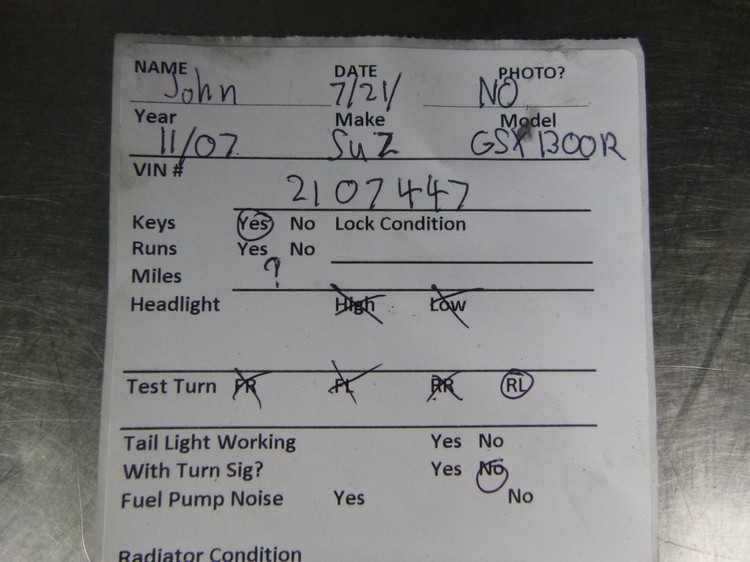 NAME DATE PHOTO?
John 7/21/ NO
Year Make Model
11/07 Suz GSX1300R
VIN #
2107447
Keys Yes No Lock Condition
Runs Yes No
Miles ?
Headlight High Low
Test Turn FR FL RR RL
Tail Light Working Yes No
With Turn Sig? Yes No
Fuel Pump Noise Yes No
Radiator Condition